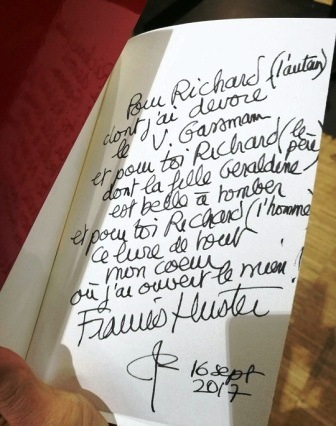 Pour Richard (l'autan)
dont j'ai dévoré
le V. Gassmann
et pour toi Richard (le père)
dont la fille Géraldine
est belle à tomber
et pour toi Richard (l'homme
ce livre de tout
mon coeur
où j'ai ouvert le mien !
Francis Huster
16 sept
2017